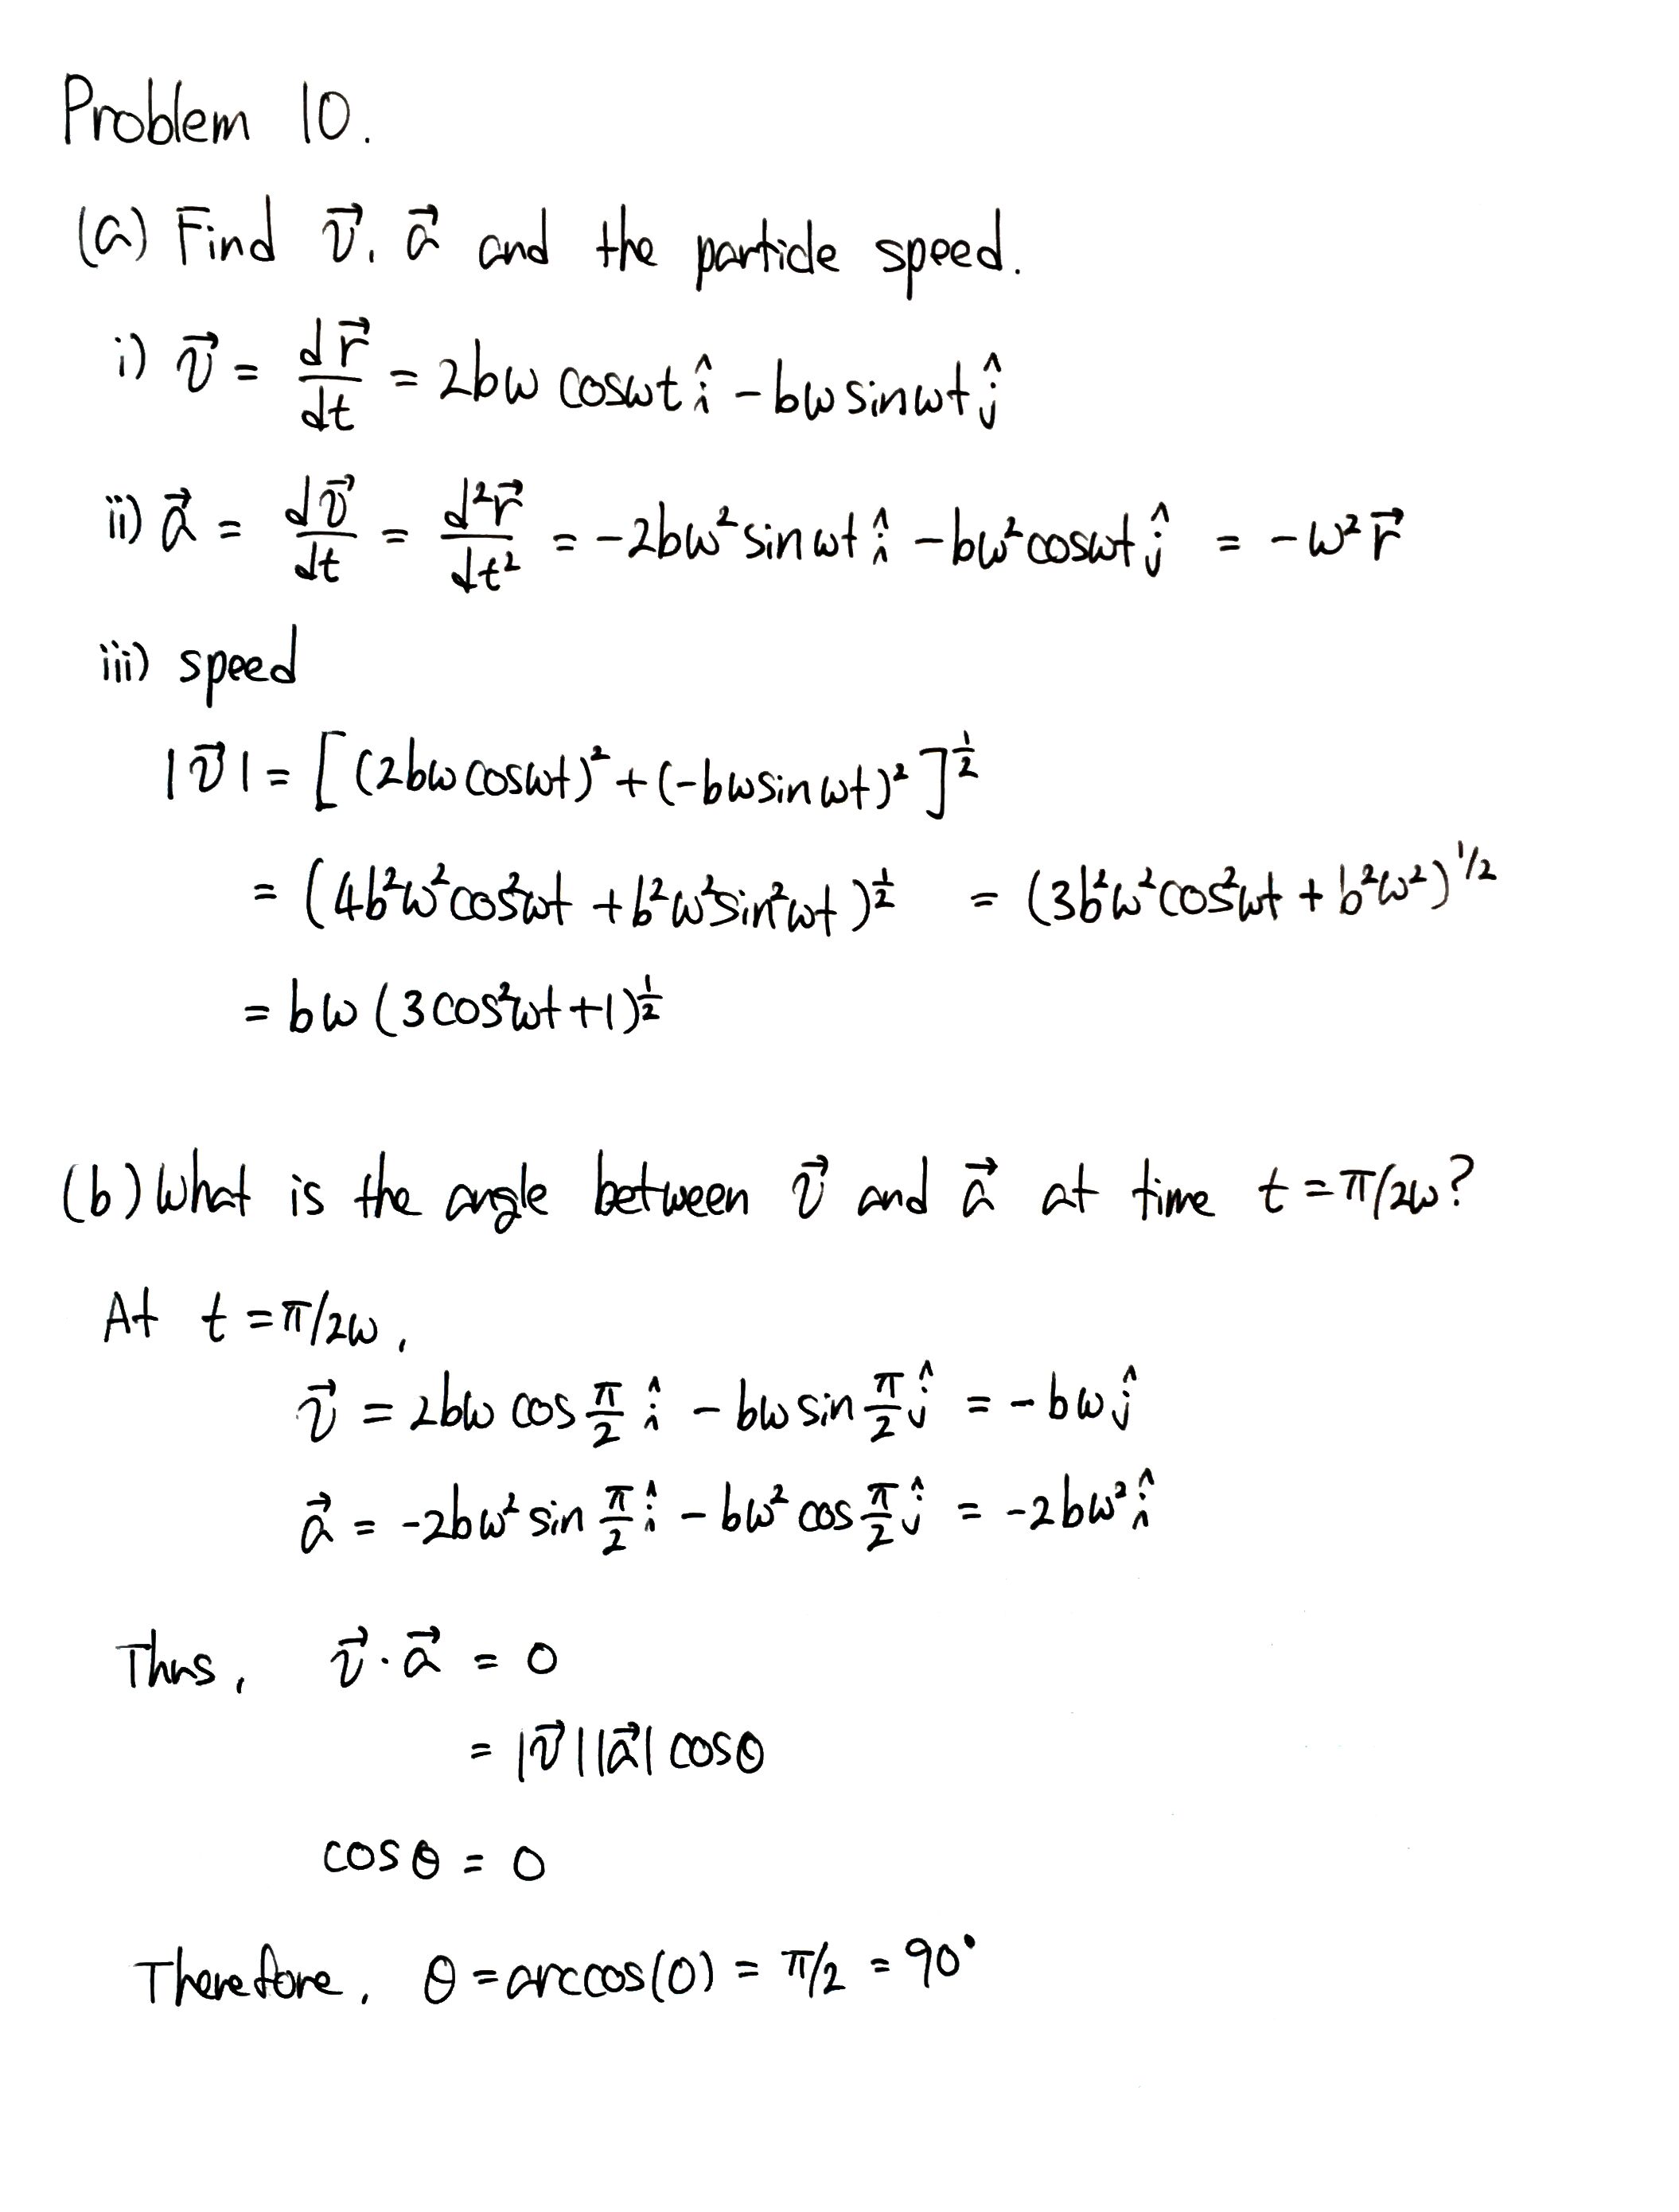 Problem 10.
(a) Find v⃗, a⃗ and the particle speed.
i) v⃗ = dr⃗/dt = 2bω cosωt î - bω sinωt ĵ
ii) a⃗ = dv⃗/dt = d²r⃗/dt² = -2bω² sinωt î - bω² cosωt ĵ = -ω² r⃗
iii) speed
|v⃗| = [(2bω cosωt)² + (-bω sinωt)²]^½
= (4b²ω² cos²ωt + b²ω² sin²ωt)^½ = (3b²ω² cos²ωt + b²ω²)^1/2
= bω (3cos²ωt + 1)^½
(b) What is the angle between v⃗ and a⃗ at time t = π/2ω?
At t = π/2ω,
v⃗ = 2bω cos π/2 î - bω sin π/2 ĵ = -bω ĵ
a⃗ = -2bω² sin π/2 î - bω² cos π/2 ĵ = -2bω² î
Thus, v⃗ · a⃗ = 0
= |v⃗||a⃗| cosθ
cosθ = 0
Therefore, θ = arccos(0) = π/2 = 90°